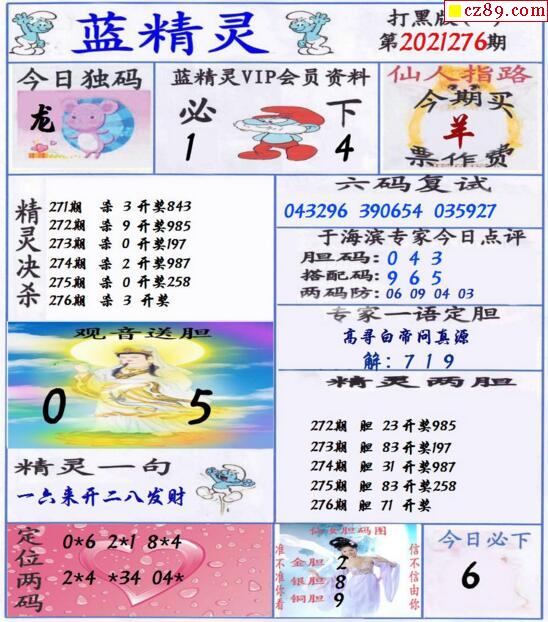 cz89.com
打黑版(一)
蓝精灵
第2021276期
今日独码
龙
蓝精灵VIP会员资料
必 下
1 4
仙人指路
今期买
羊
票作费
精灵决杀
271期 杀 3 开奖843
272期 杀 9 开奖985
273期 杀 0 开奖197
274期 杀 2 开奖987
275期 杀 0 开奖258
276期 杀 3 开奖
六码复试
043296 390654 035927
于海滨专家今日点评
胆码: 0 4 3
搭配码: 9 6 5
两码防: 06 09 04 03
专家一语定胆
高寻白帝问真源
解: 7 1 9
观音送胆
0 5
精灵两胆
272期 胆 23 开奖985
273期 胆 83 开奖197
274期 胆 31 开奖987
275期 胆 83 开奖258
276期 胆 71 开奖
精灵一句
一六来开二八发财
定位两码
0*6 2*1 8*4
2*4 *34 04*
女胆码图
准不准你看
信不信由你
金胆 2
银胆 8
铜胆 9
今日必下
6